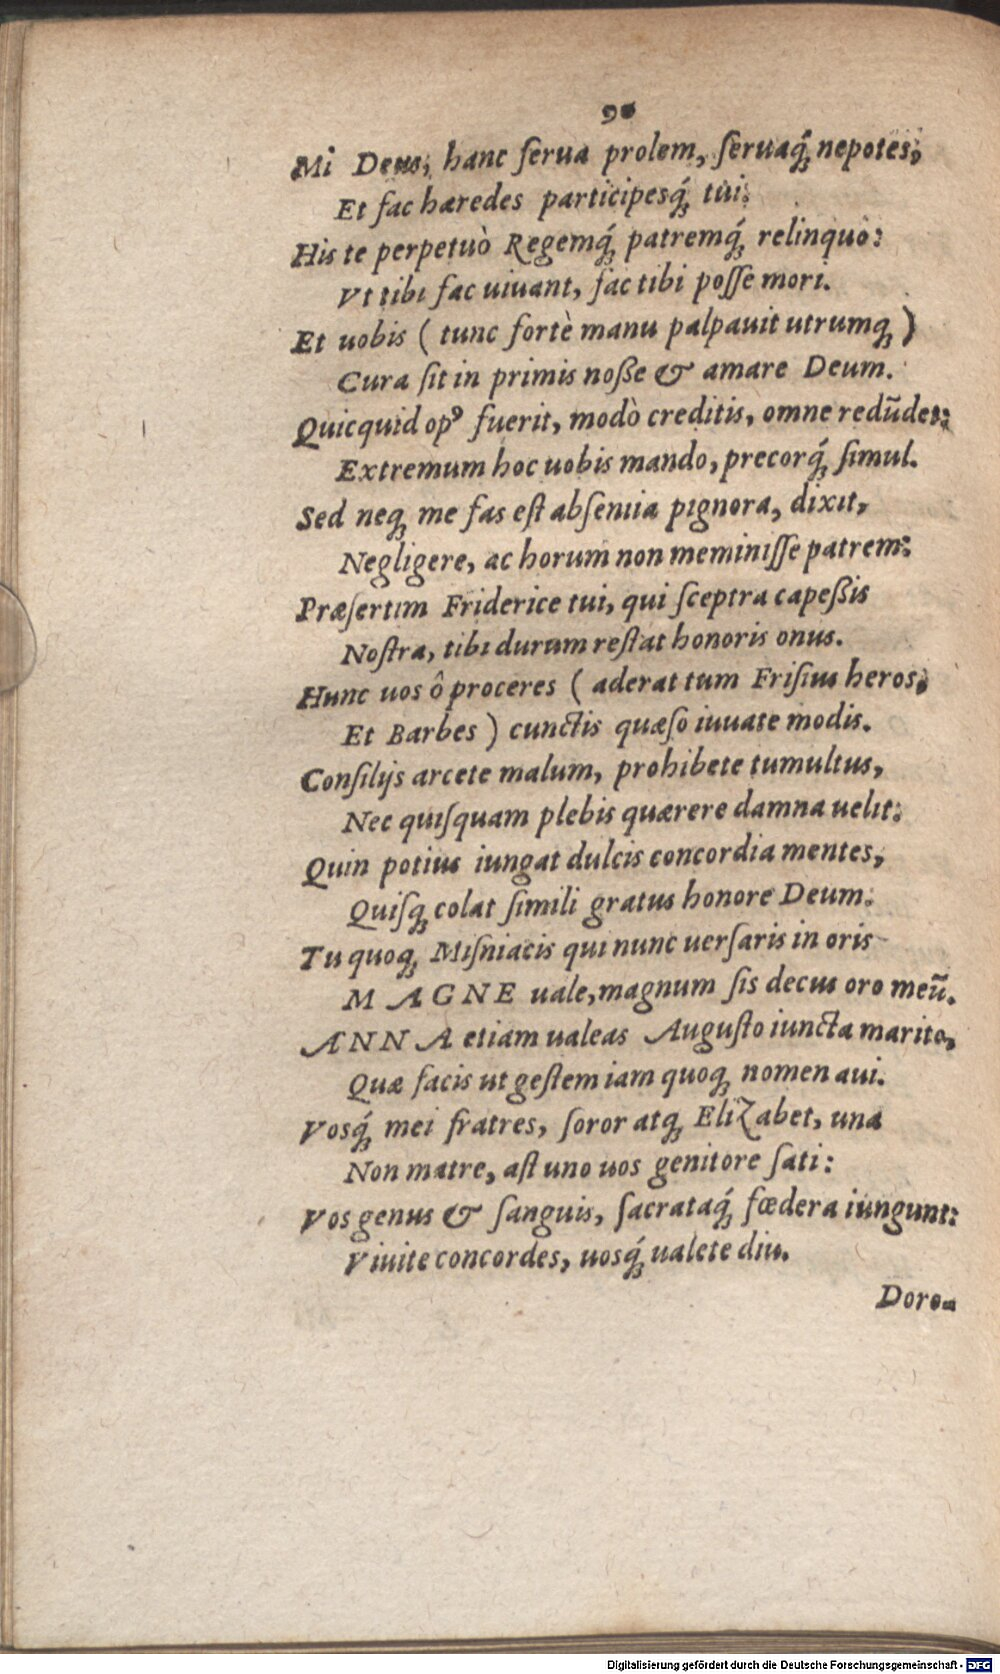 90
Mi Deus, hanc ſerua prolem, ſeruaq́; nepotes,
Et fac hæredes participesq́; tui.
His te perpetuò Regemq́; patremq́; relinquo:
Vt tibi fac uiuant, fac tibi poſſe mori.
Et uobis ( tunc fortè manu palpauit utrumq; )
Cura ſit in primis noßе & amare Deum.
Quicquid opꝰ fuerit, modò creditis, omne redūdet:
Extremum hoc uobis mando, precorq́; ſimul.
Sed neq; me fas eſt abſentia pignora, dixit,
Negligere, ac horum non meminiſſe patrem:
Præſertim Friderice tui, qui ſceptra capeßis
Noſtra, tibi durum reſtat honoris onus.
Hunc uos ô proceres ( aderat tum Friſius heros,
Et Barbes ) cunctis quæſo iuuate modis.
Conſilijs arcete malum, prohibete tumultus,
Nec quiſquam plebis quærere damna uelit:
Quin potius iungat dulcis concordia mentes,
Quiſq; colat ſimili gratus honore Deum.
Tu quoq; Miſniacis qui nunc uerſaris in oris
MAGNE uale, magnum ſis decus oro meū.
ANNA etiam ualeas Auguſto iuncta marito,
Quæ facis ut geſtem iam quoq; nomen aui.
Vosq́; mei fratres, ſoror atq; Elizabet, una
Non matre, aſt uno uos genitore ſati:
Vos genus & ſanguis, ſacrataq́; fœdera iungunt:
Viuite concordes, uosq́; ualete diu.
Doro-
Digitalisierung gefördert durch die Deutsche Forschungsgemeinschaft - DFG